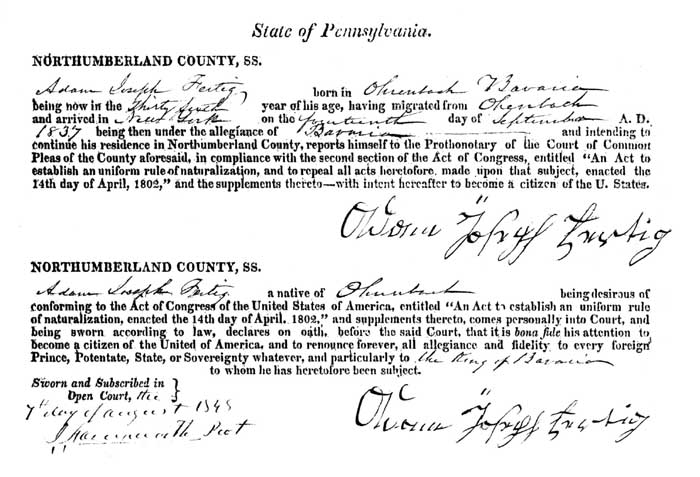 State of Pennsylvania.
NORTHUMBERLAND COUNTY, SS.
Adam Joseph Fertig born in Ohrenbach Bavaria
being now in the Thirty sixth year of his age, having migrated from Ohrenbach
and arrived in New York on the fourteenth day of September A. D.
1837 being then under the allegiance of Bavaria and intending to
continue his residence in Northumberland County, reports himself to the Prothonotary of the Court of Common
Pleas of the County aforesaid, in compliance with the second section of the Act of Congress, entitled "An Act to
establish an uniform rule of naturalization, and to repeal all acts heretofore made upon that subject, enacted the
14th day of April, 1802," and the supplements thereto—with intent hereafter to become a citizen of the U. States.
Adam Joseph Fertig
NORTHUMBERLAND COUNTY, SS.
Adam Joseph Fertig a native of Ohrenbach being desirous of
conforming to the Act of Congress of the United States of America, entitled "An Act to establish an uniform rule
of naturalization, enacted the 14th day of April, 1802," and supplements thereto, comes personally into Court, and
being sworn according to law, declares on oath, before the said Court, that it is bona fide his attention to
become a citizen of the United of America, and to renounce forever, all allegiance and fidelity to every foreign
Prince, Potentate, State, or Sovereignty whatever, and particularly to the King of Bavaria
to whom he has heretofore been subject.
Sworn and Subscribed in
Open Court, the
7th day of august 1848
Adam Joseph Fertig